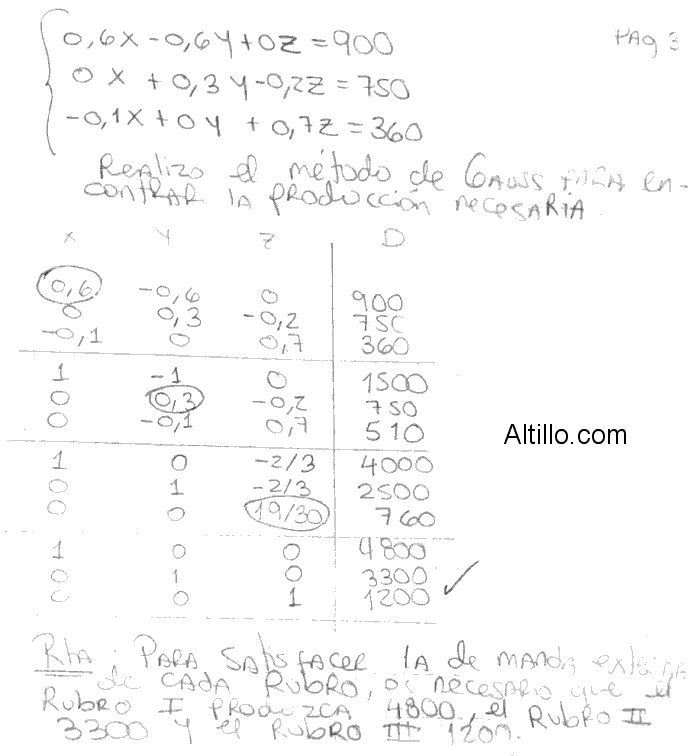 PAg 3
0,6x - 0,6y + 0z = 900
0x + 0,3y - 0,2z = 750
-0,1x + 0y + 0,7z = 360
Realizo el método de Gauss PARA en-
contrar la producción necesaria.
x y z D
0,6 -0,6 0 900
0 0,3 -0,2 750
-0,1 0 0,7 360
1 -1 0 1500
0 0,3 -0,2 750
0 -0,1 0,7 510
1 0 -2/3 4000
0 1 -2/3 2500
0 0 19/30 760
1 0 0 4800
0 1 0 3300
0 0 1 1200
Altillo.com
Rta: Para satisfacer la demanda externa
de cada Rubro, es necesario que el
Rubro I produzca 4800, el Rubro II
3300 y el Rubro III 1200.